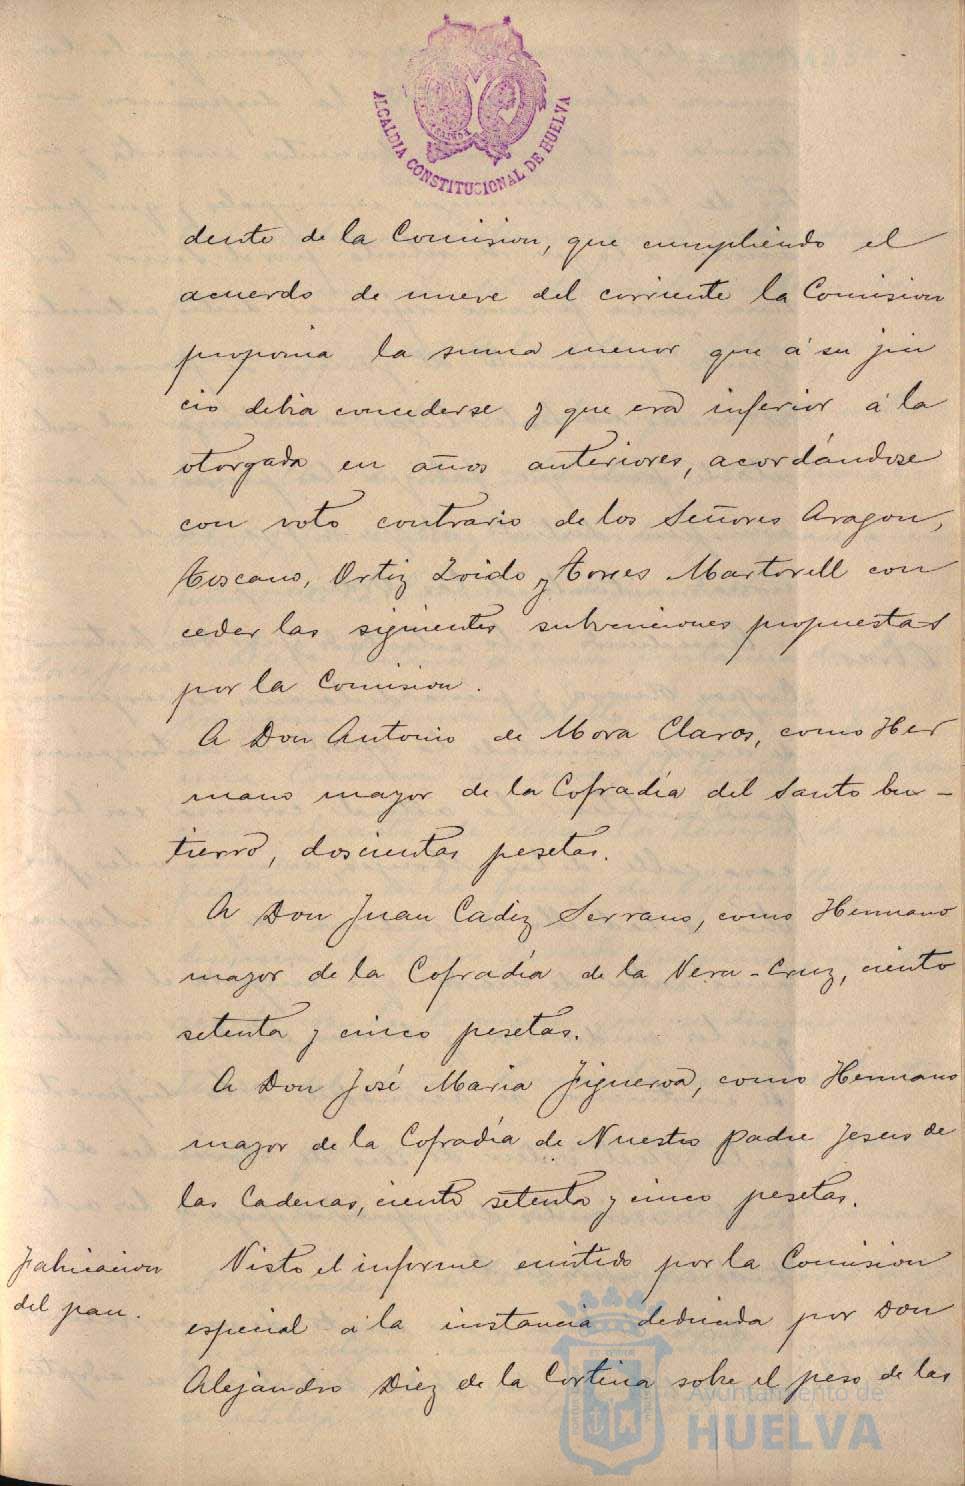 ALCALDIA CONSTITUCIONAL DE HUELVA
dente de la Comision, que cumpliendo el
acuerdo de nueve del corriente la Comision
proponia la suma menor que á su jui
cio debia concederse y que era inferior á la
otorgada en años anteriores, acordándose
con voto contrario de los Señores Aragon,
Toscano, Ortiz Zoido y Torres Martorell con
ceder las siguientes subvenciones propuestas
por la Comision.
A Don Antonio de Mora Claros, como Her
mano mayor de la Cofradía del Santo En-
tierro, doscientas pesetas.
A Don Juan Cadiz Serrano, como Hermano
mayor de la Cofradía de la Vera-Cruz, ciento
setenta y cinco pesetas.
A Don José Maria Figueroa, como Hermano
mayor de la Cofradía de Nuestro padre Jesus de
las Cadenas, ciento setenta y cinco pesetas.
Fabricacion
del pan.
Visto el informe emitido por la Comision
especial á la instancia deducida por Don
Alejandro Diez de la Cortina sobre el peso de las
Ayuntamiento de
HUELVA